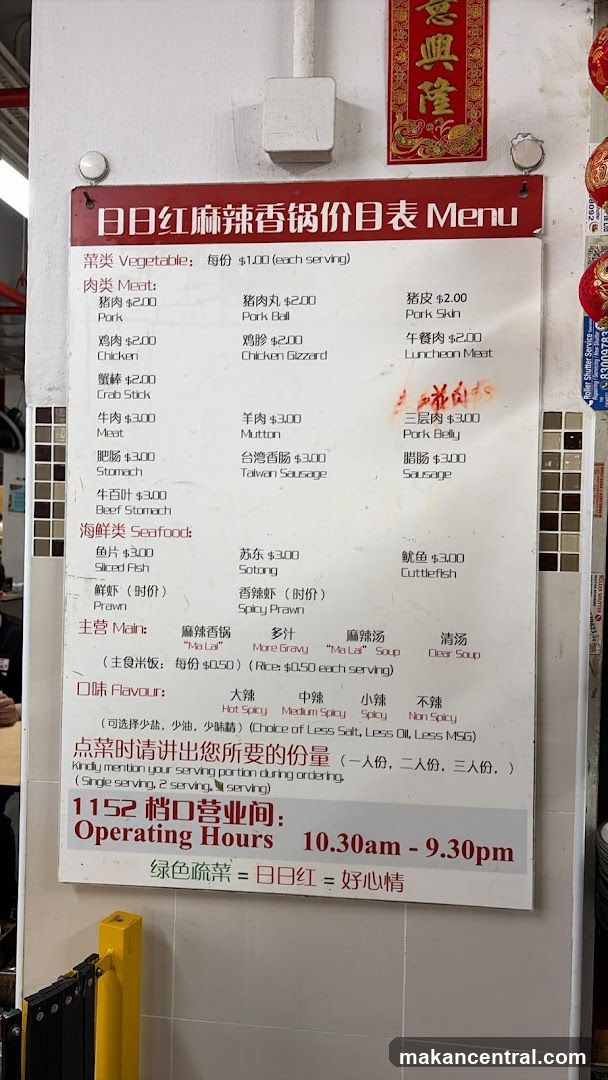 意興隆
日日红麻辣香锅价目表 Menu
菜类 Vegetable: 每份 $1.00 (each serving)
肉类 Meat:
猪肉 $2.00 猪肉丸 $2.00 猪皮 $2.00
Pork Pork Ball Pork Skin
鸡肉 $2.00 鸡胗 $2.00 午餐肉 $2.00
Chicken Chicken Gizzard Luncheon Meat
蟹棒 $2.00
Crab Stick
牛肉 $3.00 羊肉 $3.00 三层肉 $3.00
Meat Mutton Pork Belly
肥肠 $3.00 台湾香肠 $3.00 腊肠 $3.00
Stomach Taiwan Sausage Sausage
牛百叶 $3.00
Beef Stomach
海鲜类 Seafood:
鱼片 $3.00 苏东 $3.00 鱿鱼 $3.00
Sliced Fish Sotong Cuttlefish
鲜虾（时价） 香辣虾（时价）
Prawn Spicy Prawn
主营 Main: 麻辣香锅 多汁 麻辣汤 清汤
"Ma Lai" More Gravy "Ma Lai" Soup Clear Soup
（主食米饭：每份 $0.50）(Rice: $0.50 each serving)
口味 Flavour: 大辣 中辣 小辣 不辣
Hot Spicy Medium Spicy Spicy Non Spicy
（可选择少盐，少油，少味精）(Choice of Less Salt, Less Oil, Less MSG)
点菜时请讲出您所要的份量（一人份，二人份，三人份，）
Kindly mention your serving portion during ordering.
( Single serving, 2 serving, serving)
1152 档口营业间：
Operating Hours 10.30am - 9.30pm
绿色疏菜 = 日日红 = 好心情
Roller Shutter Service
83009783
makancentral.com